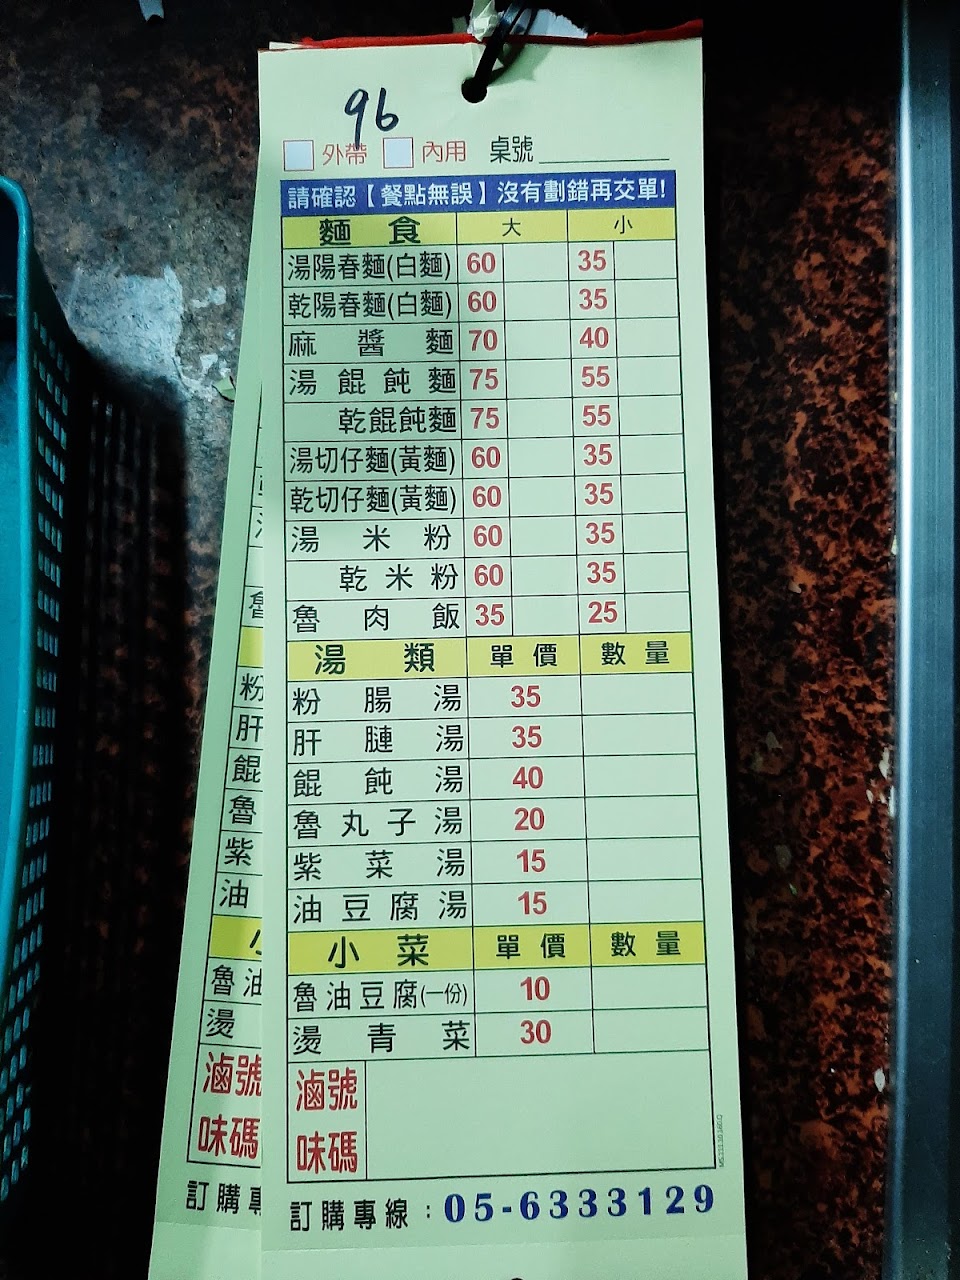 96
外帶 內用 桌號
請確認【餐點無誤】沒有劃錯再交單!
麵食 大 小
湯陽春麵(白麵) 60 35
乾陽春麵(白麵) 60 35
麻醬麵 70 40
湯餛飩麵 75 55
乾餛飩麵 75 55
湯切仔麵(黃麵) 60 35
乾切仔麵(黃麵) 60 35
湯米粉 60 35
乾米粉 60 35
魯肉飯 35 25
湯類 單價 數量
粉腸湯 35
肝腱湯 35
餛飩湯 40
魯丸子湯 20
紫菜湯 15
油豆腐湯 15
小菜 單價 數量
魯油豆腐(一份) 10
燙青菜 30
滷味號碼
訂購專線：05-6333129
魯
粉
肝
餛
魯
紫
油
魯油
燙
滷號
味碼
訂購專